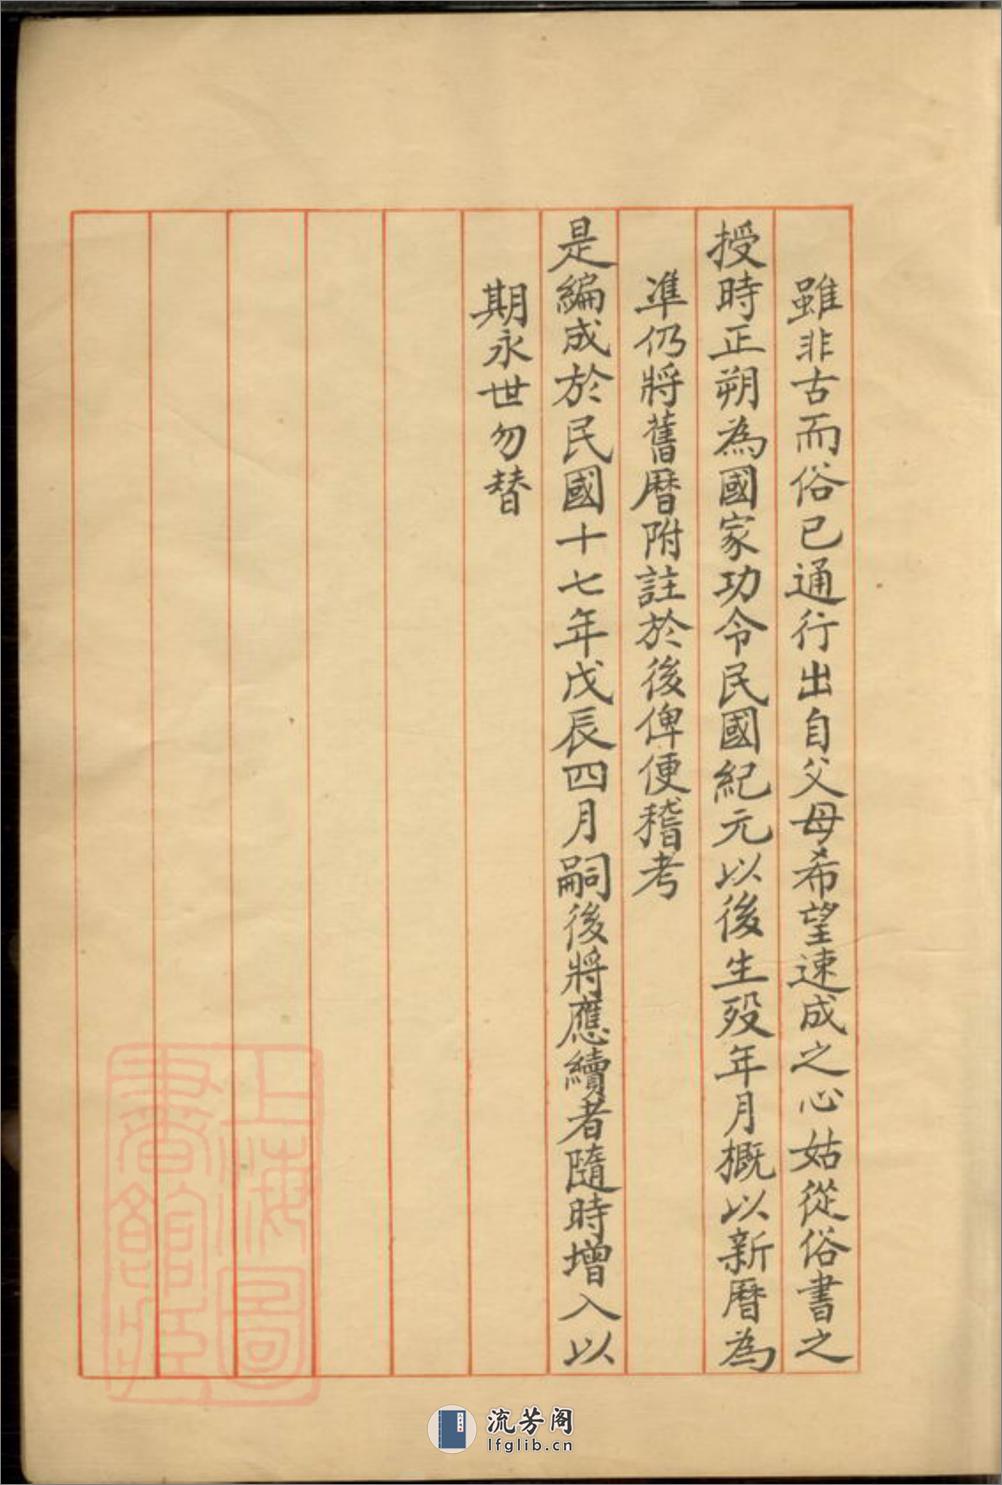 雖非古而俗已通行出自父母希望速成之心姑從俗書之
授時正朔為國家功令民國紀元以後生歿年月概以新曆為
準仍將舊曆附註於後俾便稽考
是編成於民國十七年戊辰四月嗣後將應續者隨時增入以
期永世勿替
上海圖
書館藏
流芳阁
lfglib.cn